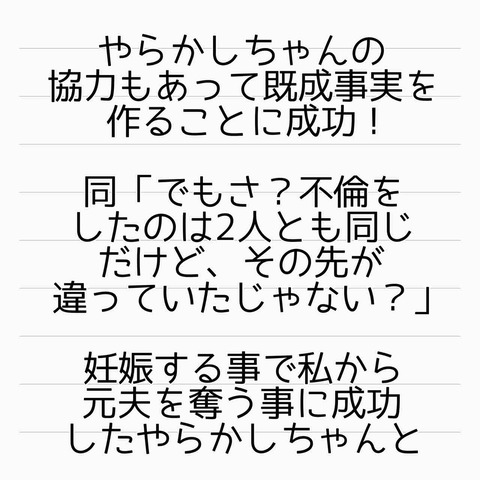 やらかしちゃんの
協力もあって既成事実を
作ることに成功！
同「でもさ？不倫を
したのは2人とも同じ
だけど、その先が
違っていたじゃない？」
妊娠する事で私から
元夫を奪う事に成功
したやらかしちゃんと